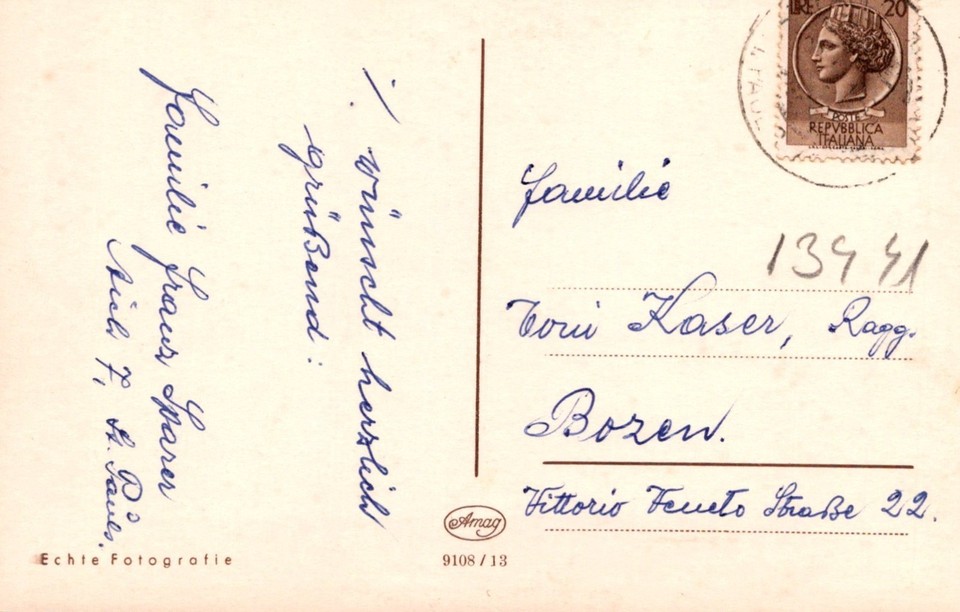 ./. wünscht herzlich
grüßend:
Familie Franz Sparer
Aich 7, St. Paul's.
LIRE 20
POSTE
REPVBBLICA
ITALIANA
Familie
13441
Toni Kaser, Ragg.
Bozen.
Vittorio Veneto Straße 22.
Amag
Echte Fotografie
9108/13